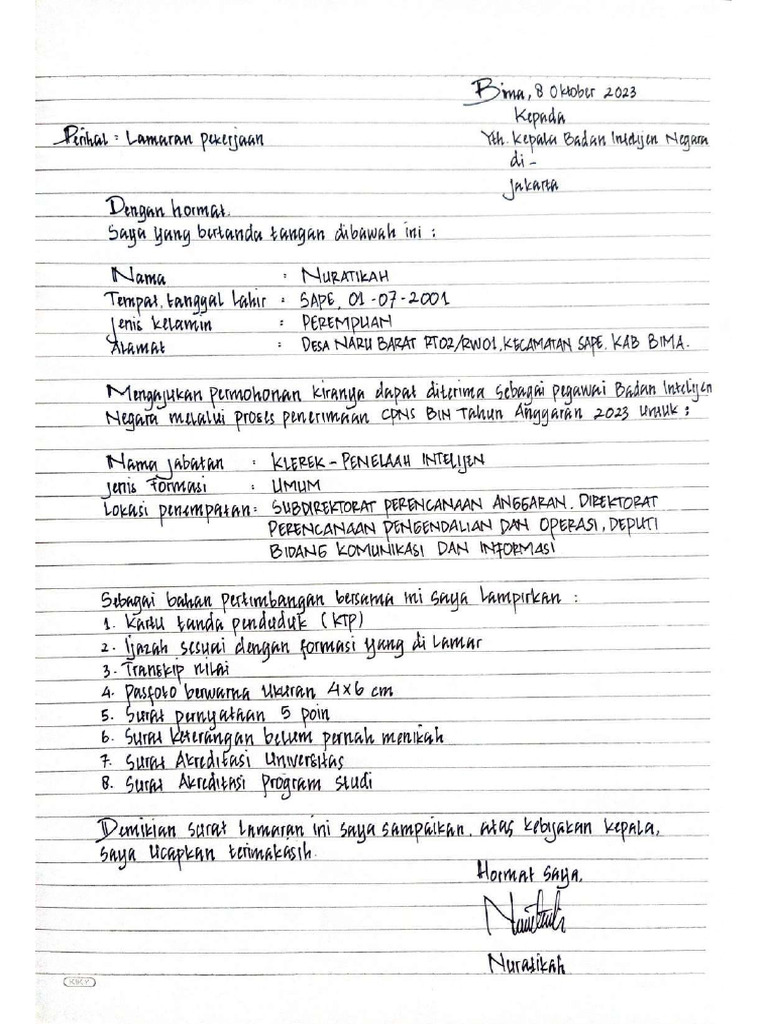 Bima, 8 Oktober 2023
Kepada
Perihal : Lamaran pekerjaan
Yth. Kepala Badan Intelijen Negara
di -
Jakarta
Dengan hormat,
Saya yang bertanda tangan dibawah ini :
Nama : NURATIKAH
Tempat, tanggal lahir : SAPE, 01-07-2001
Jenis kelamin : PEREMPUAN
Alamat : DESA NARU BARAT RT02/RW01, KECAMATAN SAPE. KAB BIMA.
Mengajukan permohonan kiranya dapat diterima sebagai pegawai Badan Intelijen
Negara melalui proses penerimaan CPNS BIN Tahun Anggaran 2023 untuk :
Nama jabatan : KLEREK - PENELAAH INTELIJEN
Jenis Formasi : UMUM
Lokasi penempatan : SUBDIREKTORAT PERENCANAAN ANGGARAN, DIREKTORAT
PERENCANAAN PENGENDALIAN DAN OPERASI, DEPUTI
BIDANG KOMUNIKASI DAN INFORMASI
Sebagai bahan pertimbangan bersama ini saya lampirkan :
1. Kartu tanda penduduk (KTP)
2. Ijazah sesuai dengan formasi yang di lamar
3. Transkip nilai
4. Pasfoto berwarna ukuran 4x6 cm
5. Surat pernyataan 5 poin
6. Surat keterangan belum pernah menikah
7. Surat Akreditasi Universitas
8. Surat Akreditasi Program Studi
Demikian surat lamaran ini saya sampaikan, atas kebijakan kepala,
saya ucapkan terimakasih.
Hormat saya,
Nuratikah
KIKY